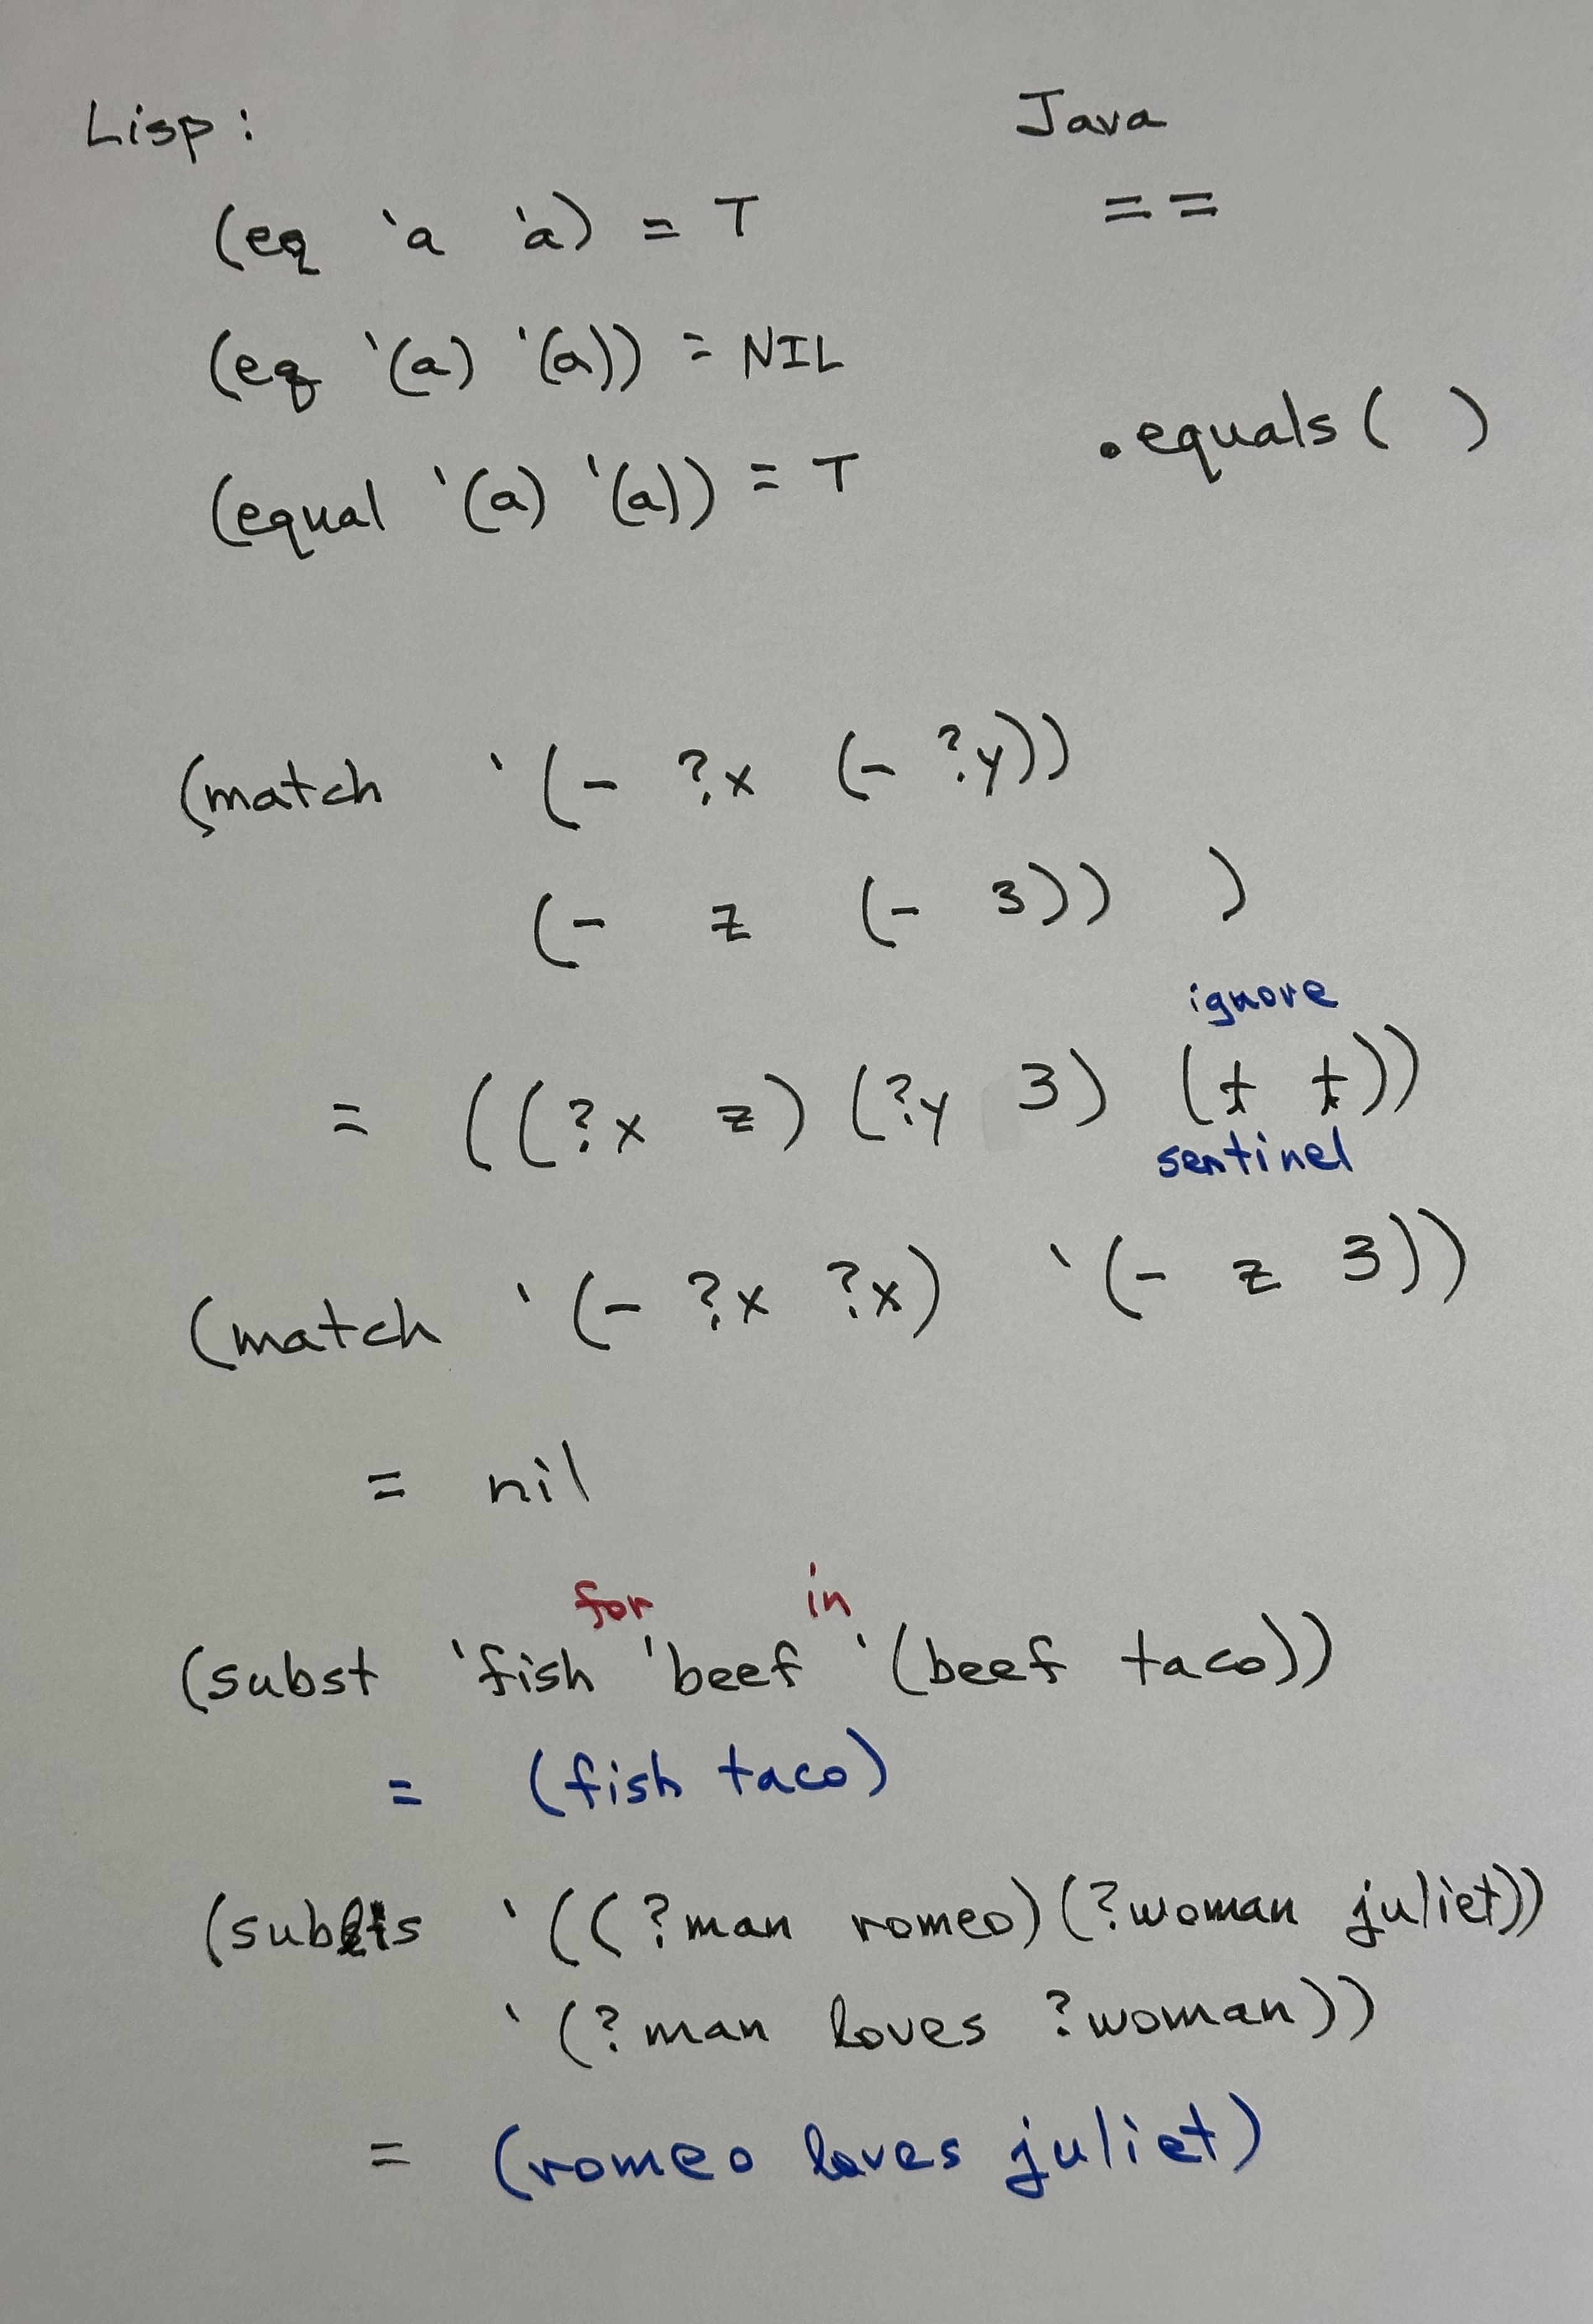 Lisp: Java
(eq 'a 'a) = T ==
(eq '(a) '(a)) = NIL
.equals( )
(equal '(a) '(a)) = T
(match '(- ?x (- ?y))
(- z (- 3)) )
ignore
= ((?x z) (?y 3) (t t))
sentinel
(match '(- ?x ?x) '(- z 3))
= nil
for in
(subst 'fish 'beef '(beef taco))
= (fish taco)
'((?man romeo)(?woman juliet))
'(?man loves ?woman))
= (romeo loves juliet)